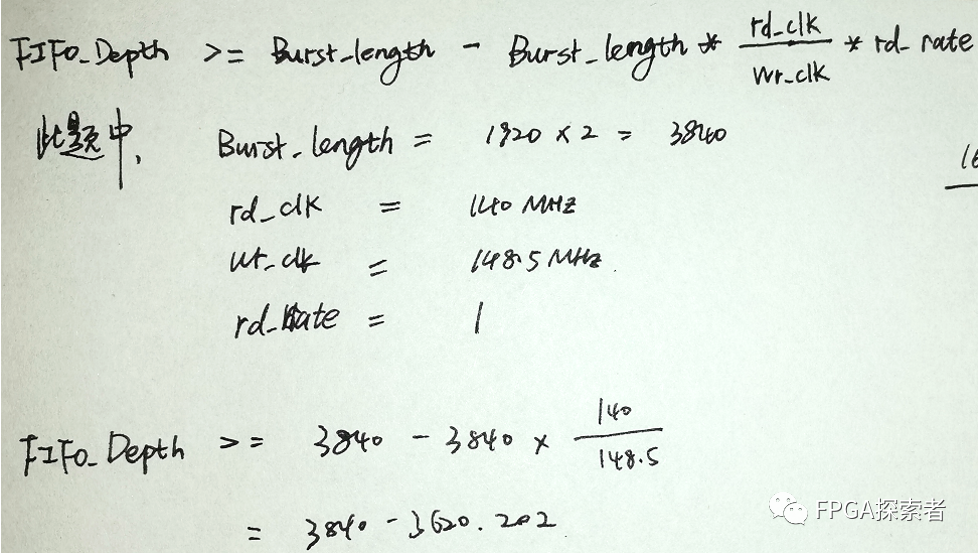 FIFO_Depth >= Burst_length - Burst_length * rd_clk / wr_clk * rd_rate
此题中,
Burst_length = 1920 × 2 = 3840
rd_clk = 140 MHz
wr_clk = 148.5 MHz
rd_rate = 1
FIFO_Depth >= 3840 - 3840 × 140 / 148.5
= 3840 - 3620.202
FPGA探索者